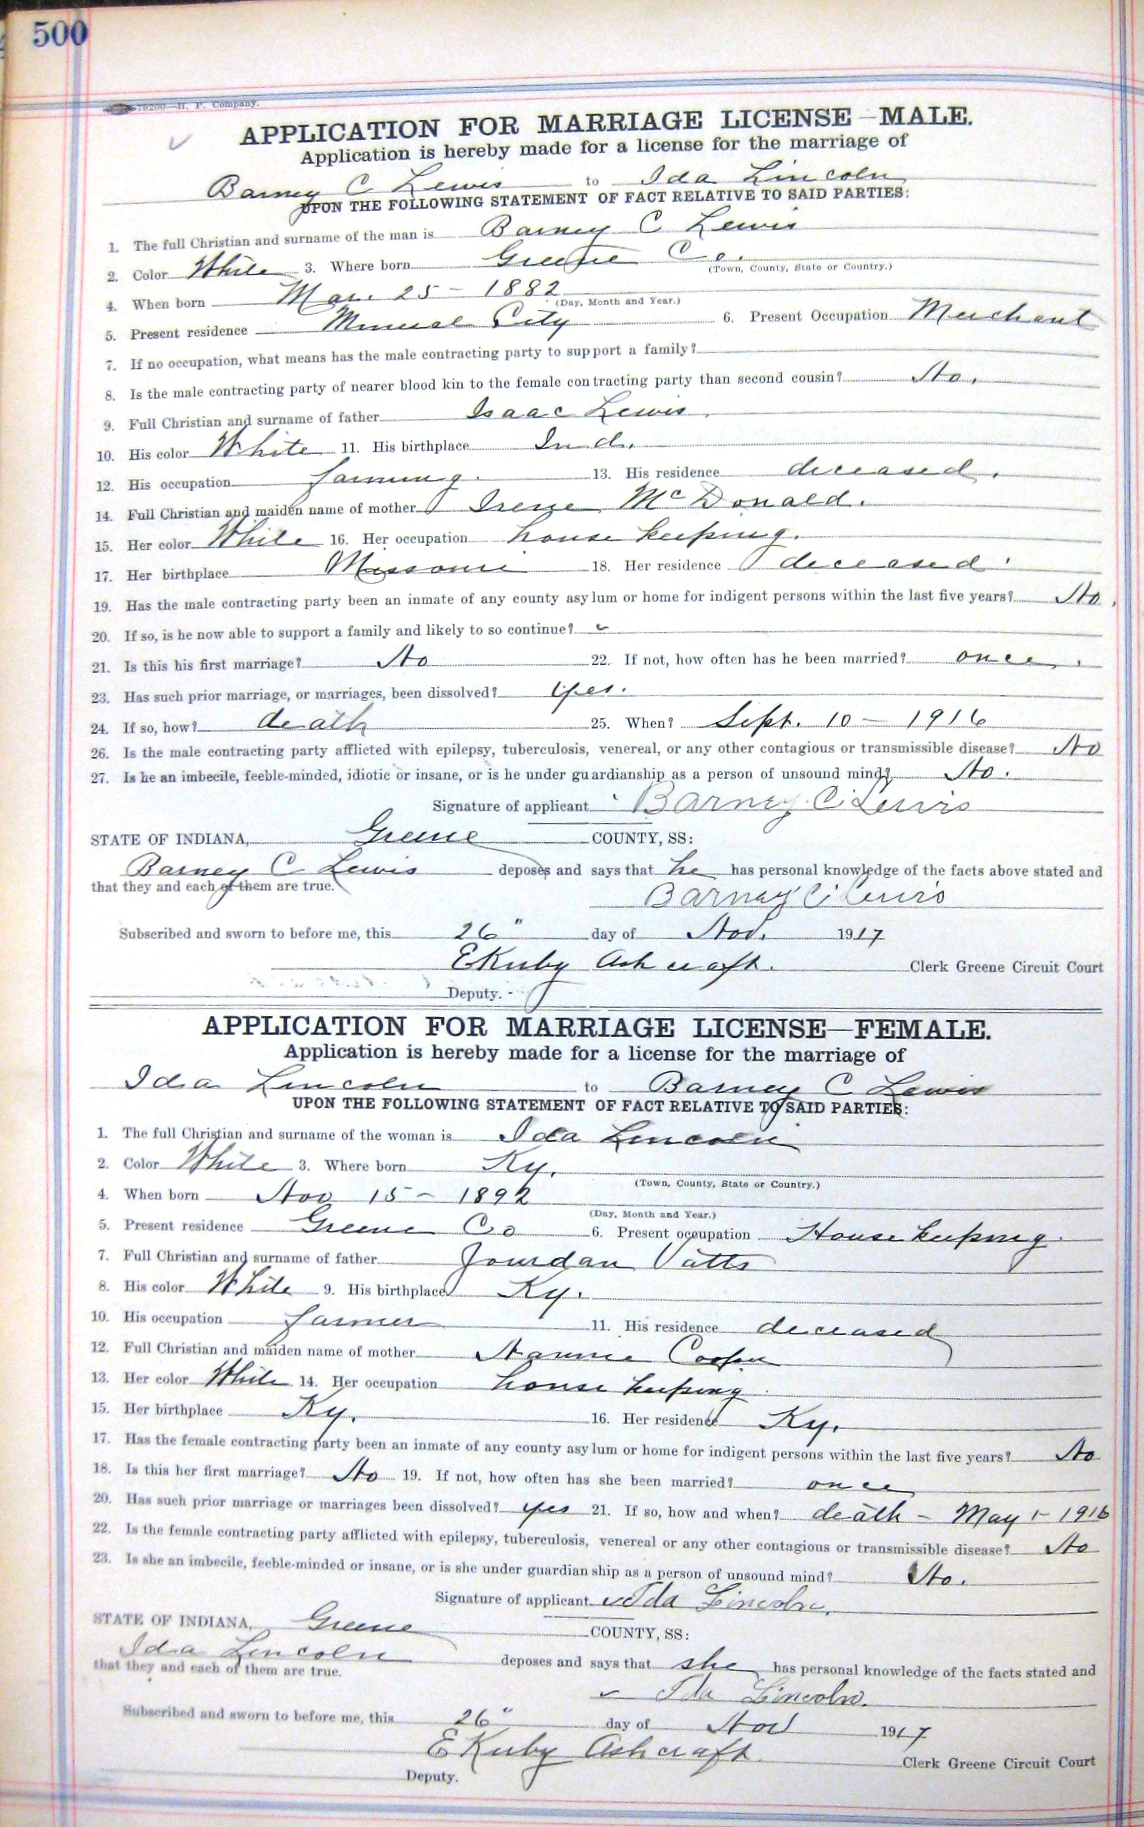 500
H. P. Company.
APPLICATION FOR MARRIAGE LICENSE—MALE.
Application is hereby made for a license for the marriage of
Barney C Lewis to Ida Lincoln
UPON THE FOLLOWING STATEMENT OF FACT RELATIVE TO SAID PARTIES:
1. The full Christian and surname of the man is Barney C Lewis
2. Color White 3. Where born Greene Co.
(Town, County, State or Country.)
4. When born Mar. 25 - 1882
(Day, Month and Year.)
5. Present residence Mineral City 6. Present Occupation Merchant
7. If no occupation, what means has the male contracting party to support a family?
8. Is the male contracting party of nearer blood kin to the female contracting party than second cousin? No.
9. Full Christian and surname of father Isaac Lewis.
10. His color White 11. His birthplace Ind.
12. His occupation farming. 13. His residence deceased.
14. Full Christian and maiden name of mother Irene McDonald.
15. Her color White 16. Her occupation house keeping.
17. Her birthplace Missouri 18. Her residence deceased
19. Has the male contracting party been an inmate of any county asylum or home for indigent persons within the last five years? No.
20. If so, is he now able to support a family and likely to so continue?
21. Is this his first marriage? No 22. If not, how often has he been married? once.
23. Has such prior marriage, or marriages, been dissolved? yes.
24. If so, how? death 25. When? Sept. 10 - 1916
26. Is the male contracting party afflicted with epilepsy, tuberculosis, venereal, or any other contagious or transmissible disease? No
27. Is he an imbecile, feeble-minded, idiotic or insane, or is he under guardianship as a person of unsound mind? No.
Signature of applicant Barney C. Lewis
STATE OF INDIANA, Greene COUNTY, SS:
Barney C Lewis deposes and says that he has personal knowledge of the facts above stated and
that they and each of them are true.
Barney C. Lewis
Subscribed and sworn to before me, this 26" day of Nov. 1917
E Kirby Ashcraft. Clerk Greene Circuit Court
Deputy.
APPLICATION FOR MARRIAGE LICENSE—FEMALE.
Application is hereby made for a license for the marriage of
Ida Lincoln to Barney C Lewis
UPON THE FOLLOWING STATEMENT OF FACT RELATIVE TO SAID PARTIES:
1. The full Christian and surname of the woman is Ida Lincoln
2. Color White 3. Where born Ky.
(Town, County, State or Country.)
4. When born Nov 15 - 1892
(Day, Month and Year.)
5. Present residence Greene Co 6. Present occupation House keeping.
7. Full Christian and surname of father Jourdan Vatts
8. His color White 9. His birthplace Ky.
10. His occupation farmer 11. His residence deceased
12. Full Christian and maiden name of mother Nannie Cooper
13. Her color White 14. Her occupation house keeping
15. Her birthplace Ky. 16. Her residence Ky.
17. Has the female contracting party been an inmate of any county asylum or home for indigent persons within the last five years? No
18. Is this her first marriage? No 19. If not, how often has she been married? once
20. Has such prior marriage or marriages been dissolved? yes 21. If so, how and when? death - May 1 - 1916
22. Is the female contracting party afflicted with epilepsy, tuberculosis, venereal or any other contagious or transmissible disease? No
23. Is she an imbecile, feeble-minded or insane, or is she under guardianship as a person of unsound mind? No.
Signature of applicant Ida Lincoln.
STATE OF INDIANA, Greene COUNTY, SS:
Ida Lincoln deposes and says that she has personal knowledge of the facts stated and
that they and each of them are true.
Ida Lincoln.
Subscribed and sworn to before me, this 26" day of Nov 1917
E Kirby Ashcraft. Clerk Greene Circuit Court
Deputy.